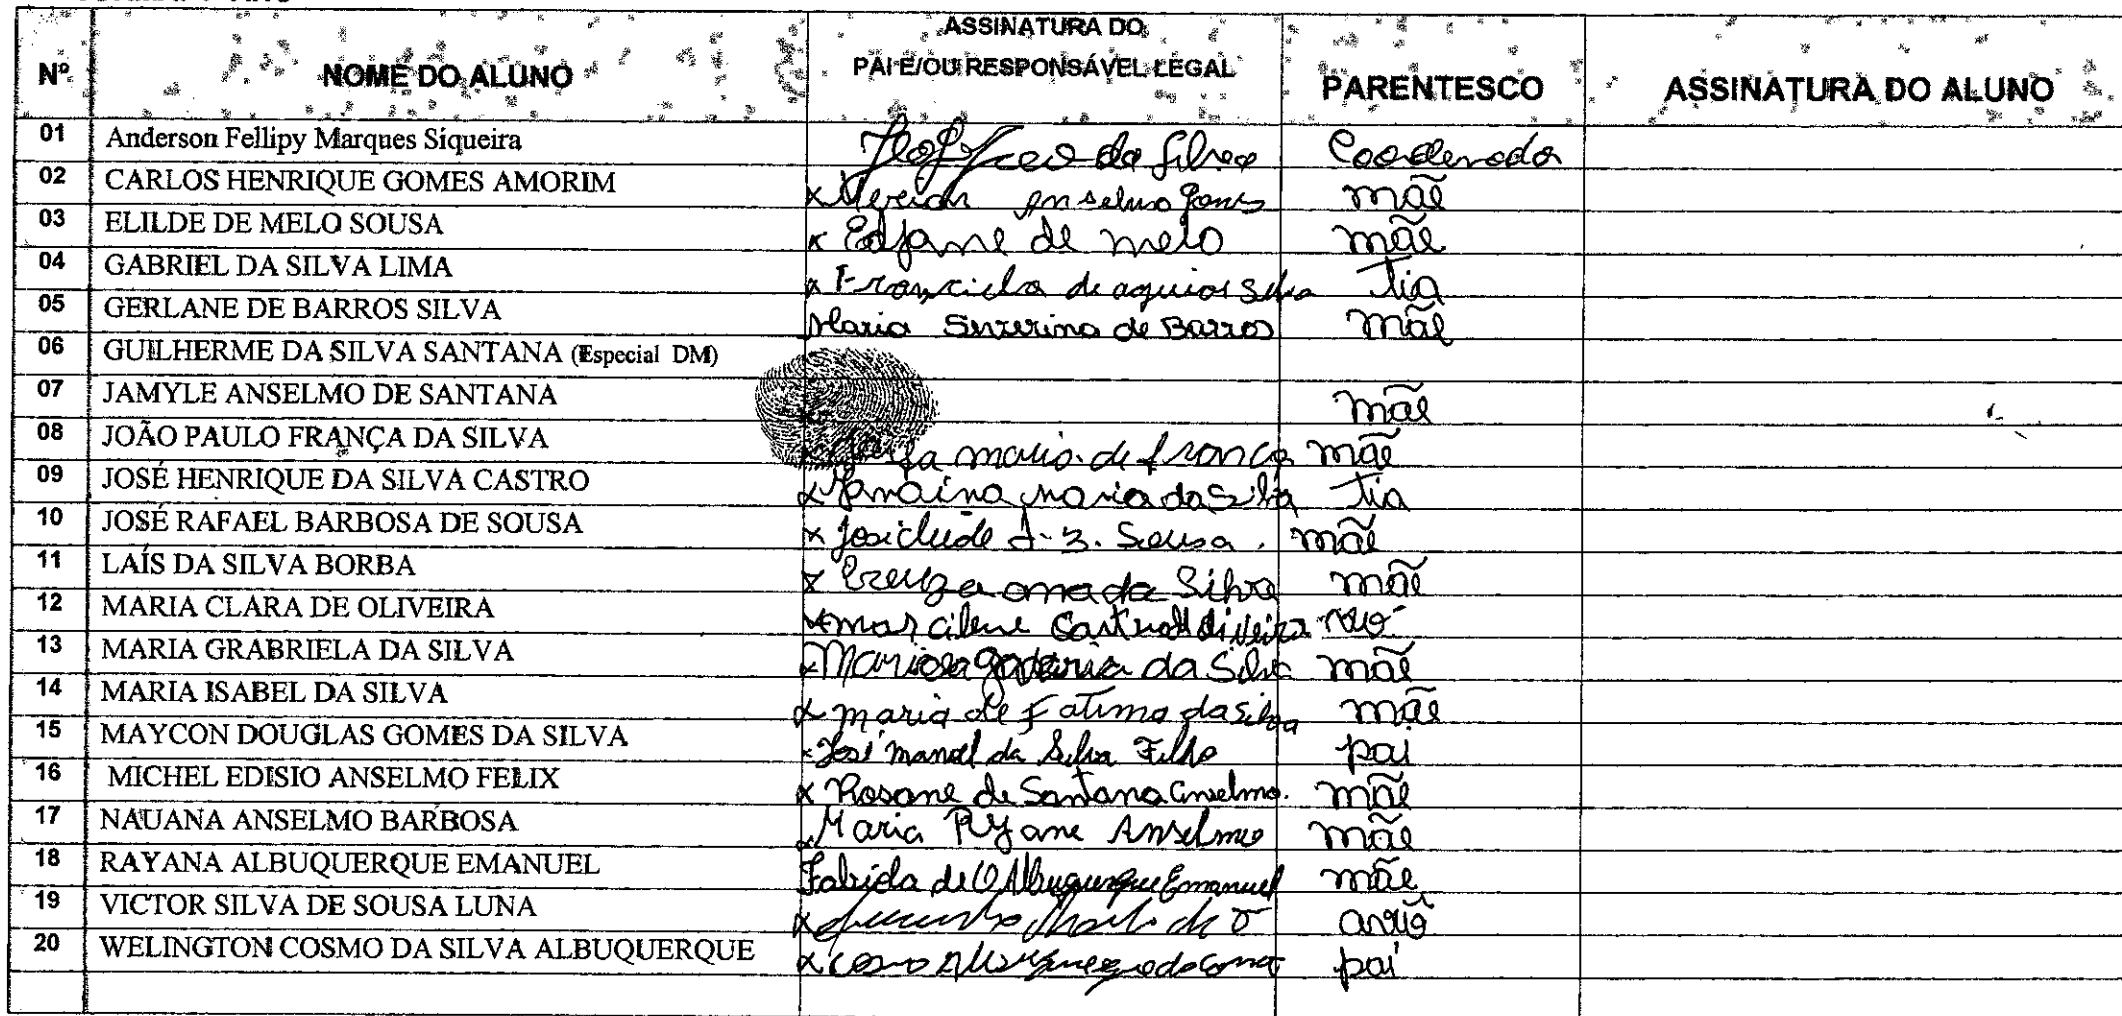 Nº NOME DO ALUNO ASSINATURA DO PAI E/OU RESPONSÁVEL LEGAL PARENTESCO ASSINATURA DO ALUNO
01 Anderson Fellipy Marques Siqueira da Silva
02 CARLOS HENRIQUE GOMES AMORIM x mãe
03 ELILDE DE MELO SOUSA x Edjane de melo mãe
04 GABRIEL DA SILVA LIMA x tia
05 GERLANE DE BARROS SILVA Maria Severina de Barros mãe
06 GUILHERME DA SILVA SANTANA (Especial DM)
07 JAMYLE ANSELMO DE SANTANA mãe
08 JOÃO PAULO FRANÇA DA SILVA maria de frança mãe
09 JOSÉ HENRIQUE DA SILVA CASTRO x Janaina maria da Silva tia
10 JOSÉ RAFAEL BARBOSA DE SOUSA x Josicleide Sousa mãe
11 LAÍS DA SILVA BORBA x Creuza ana da Silva mãe
12 MARIA CLARA DE OLIVEIRA
13 MARIA GRABRIELA DA SILVA x da Silva mãe
14 MARIA ISABEL DA SILVA x maria de Fatima da silva mãe
15 MAYCON DOUGLAS GOMES DA SILVA x José manoel da Silva Filho pai
16 MICHEL EDISIO ANSELMO FELIX x Rosane de Santana Anselmo. mãe
17 NAUANA ANSELMO BARBOSA x Maria Ryane Anselmo mãe
18 RAYANA ALBUQUERQUE EMANUEL de O Albuquerque Emanuel mãe
19 VICTOR SILVA DE SOUSA LUNA x
20 WELINGTON COSMO DA SILVA ALBUQUERQUE x pai